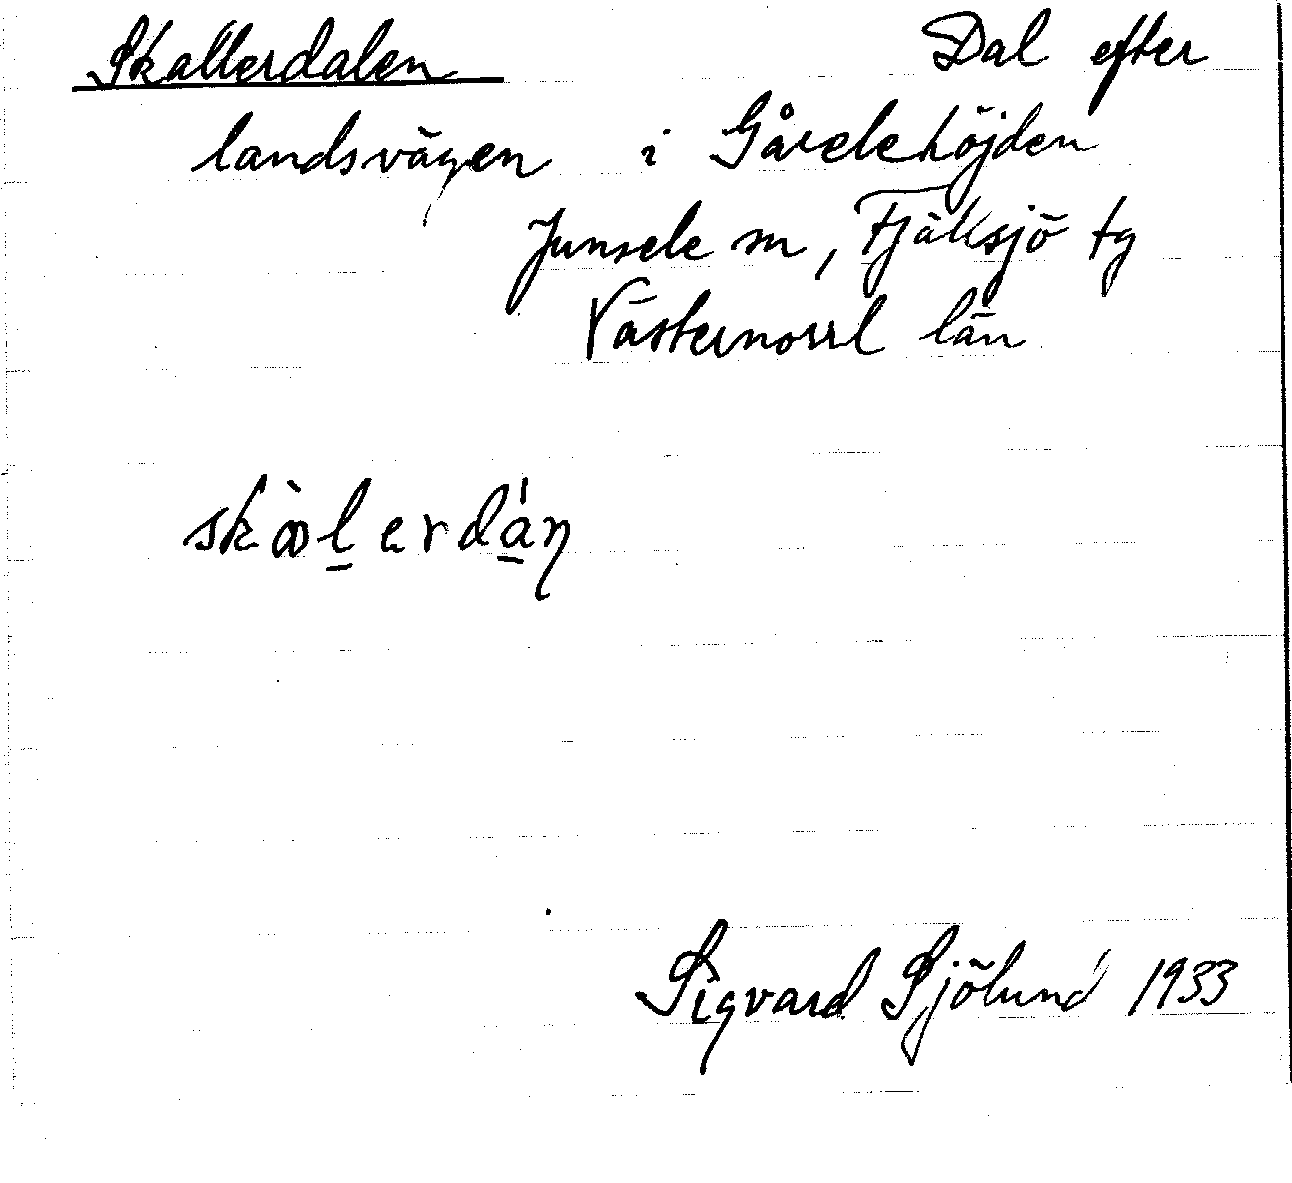 Skallerdalen Dal efter
landsvägen i Gårelehöjden
Junsele sn, Fjälsjö tg
Västernorrl län
Sigvard Sjölund 1933